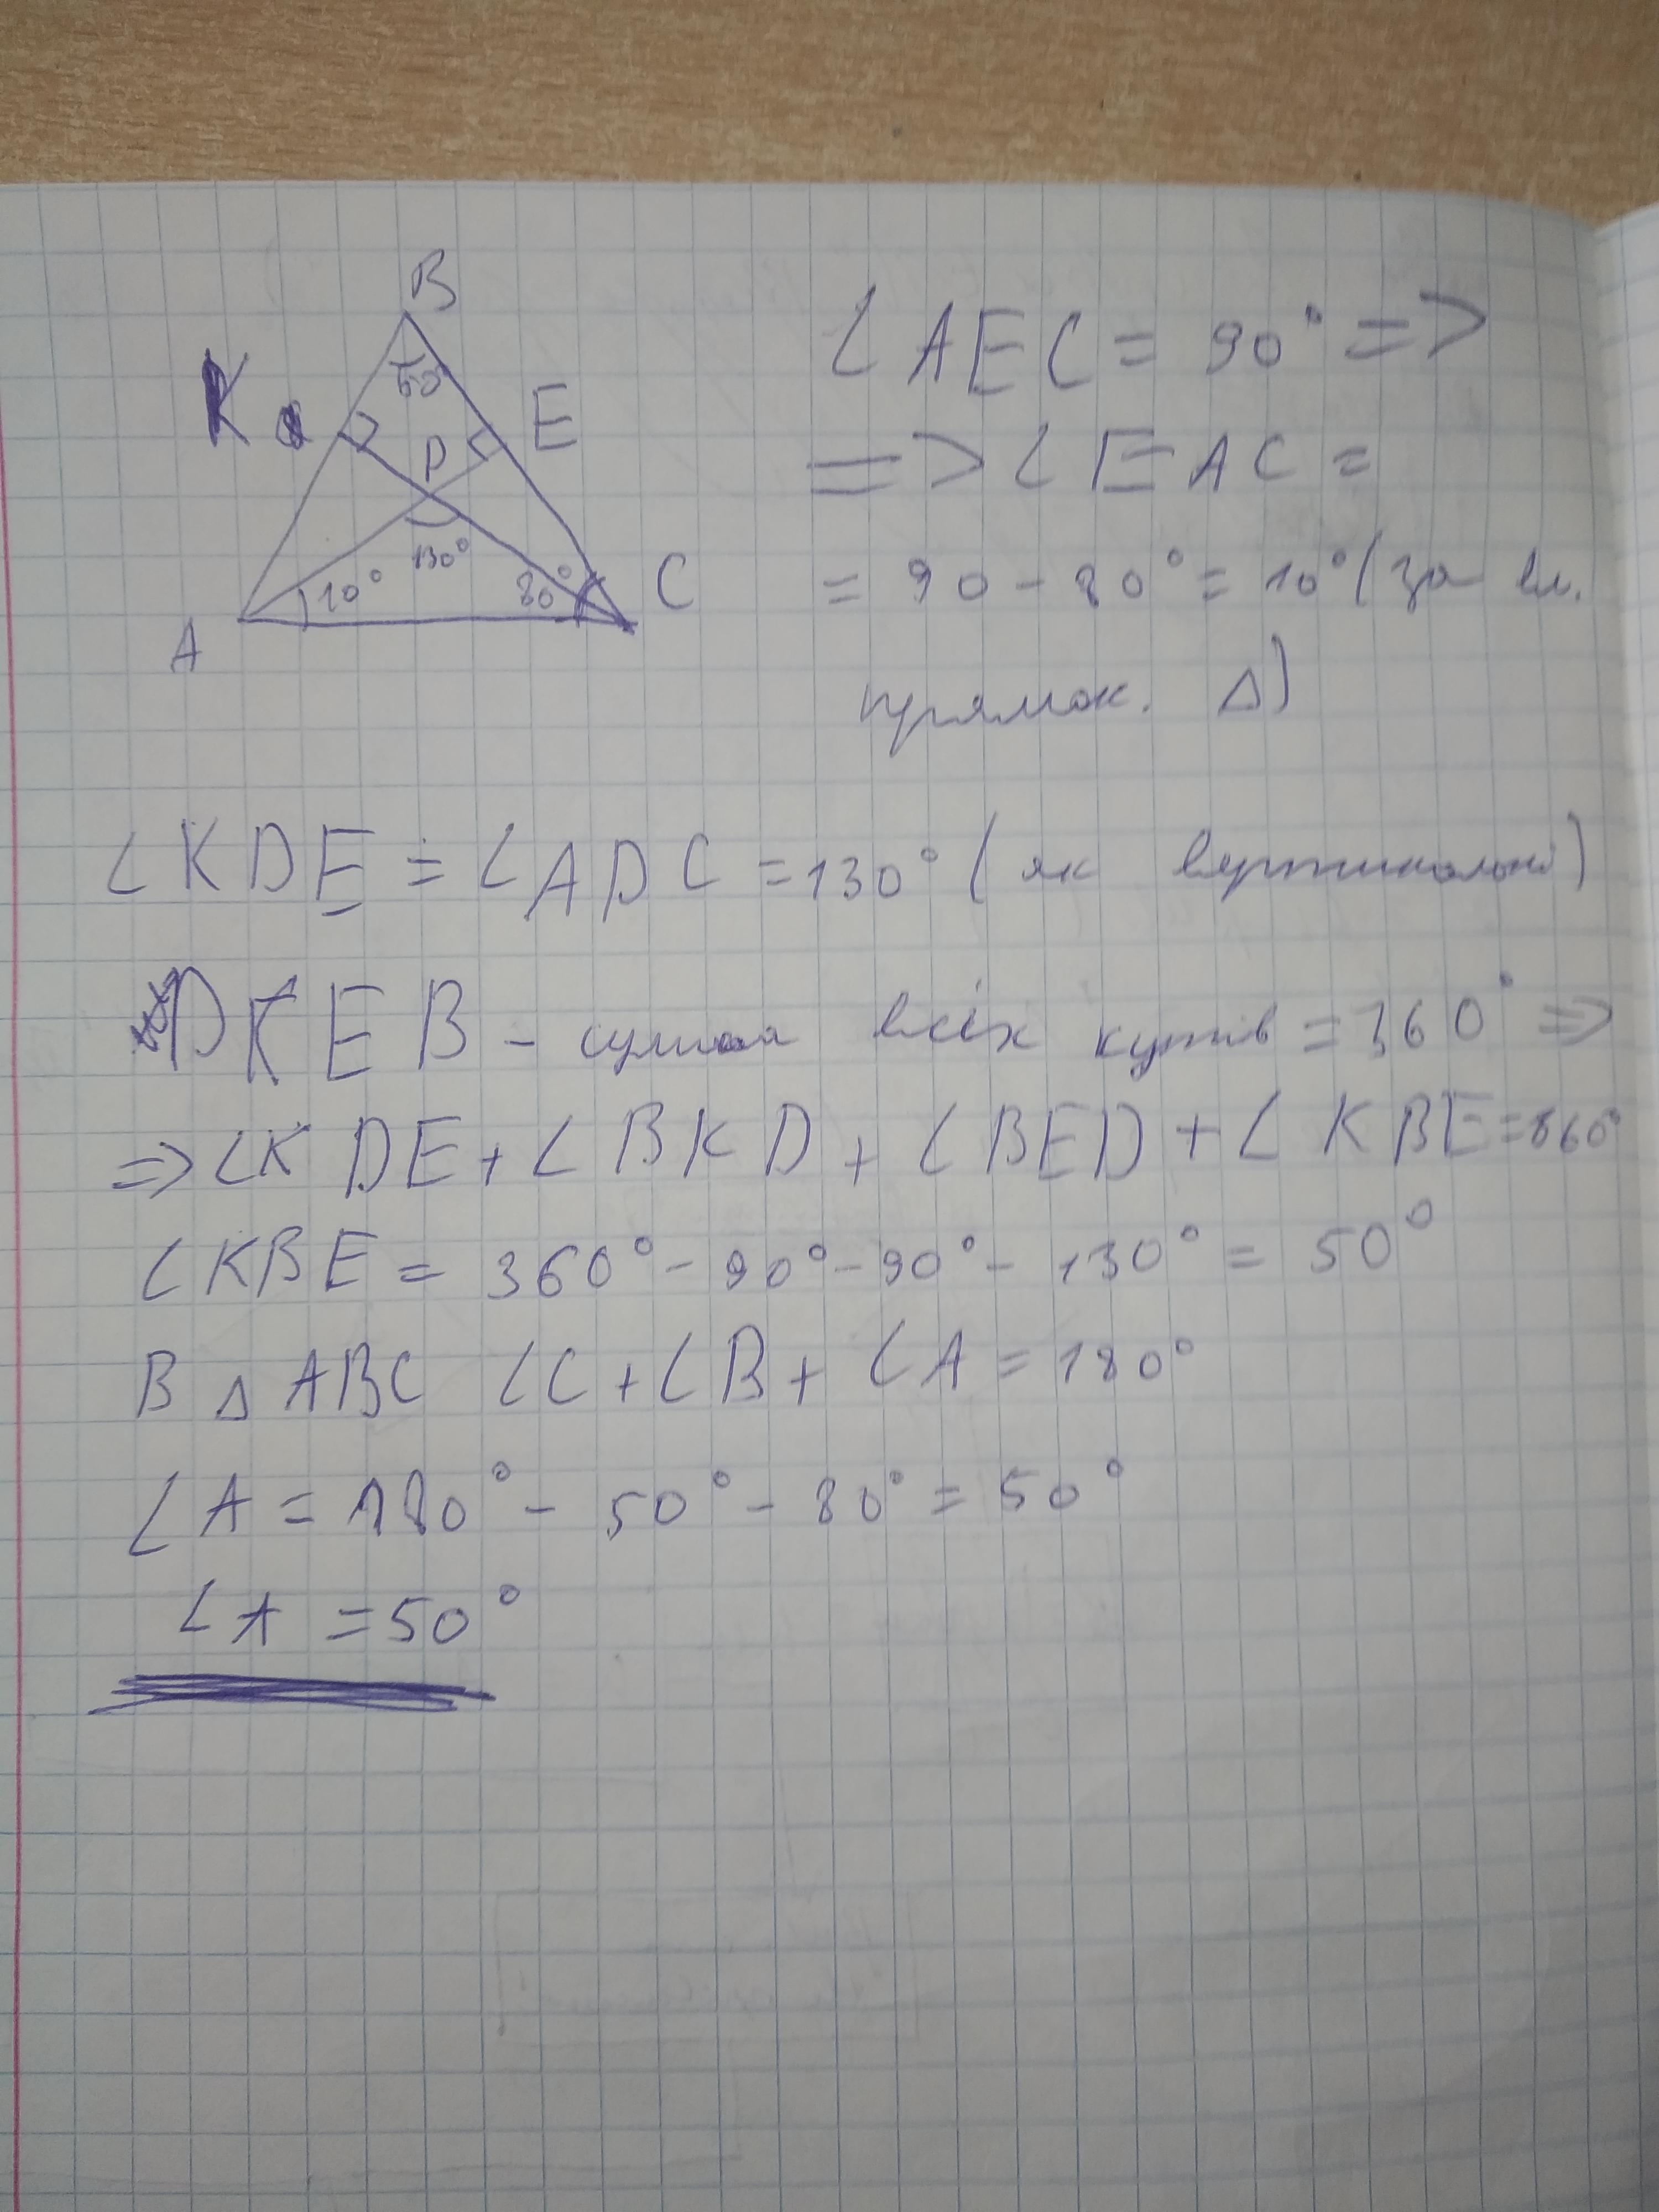 B
K
E
60
D
130°
10°
80°
C
A
∠AEC = 90° =>
=> ∠EAC =
= 90 - 80° = 10° (за вл.
прямок. Δ)
∠KDE = ∠ADC = 130° (як вертикальні)
DKEB - сума всіх кутів = 360° =>
=> ∠KDE + ∠BKD + ∠BED + ∠KBE = 360°
∠KBE = 360° - 90° - 90° - 130° = 50°
В Δ ABC ∠C + ∠B + ∠A = 180°
∠A = 180° - 50° - 80° = 50°
∠A = 50°